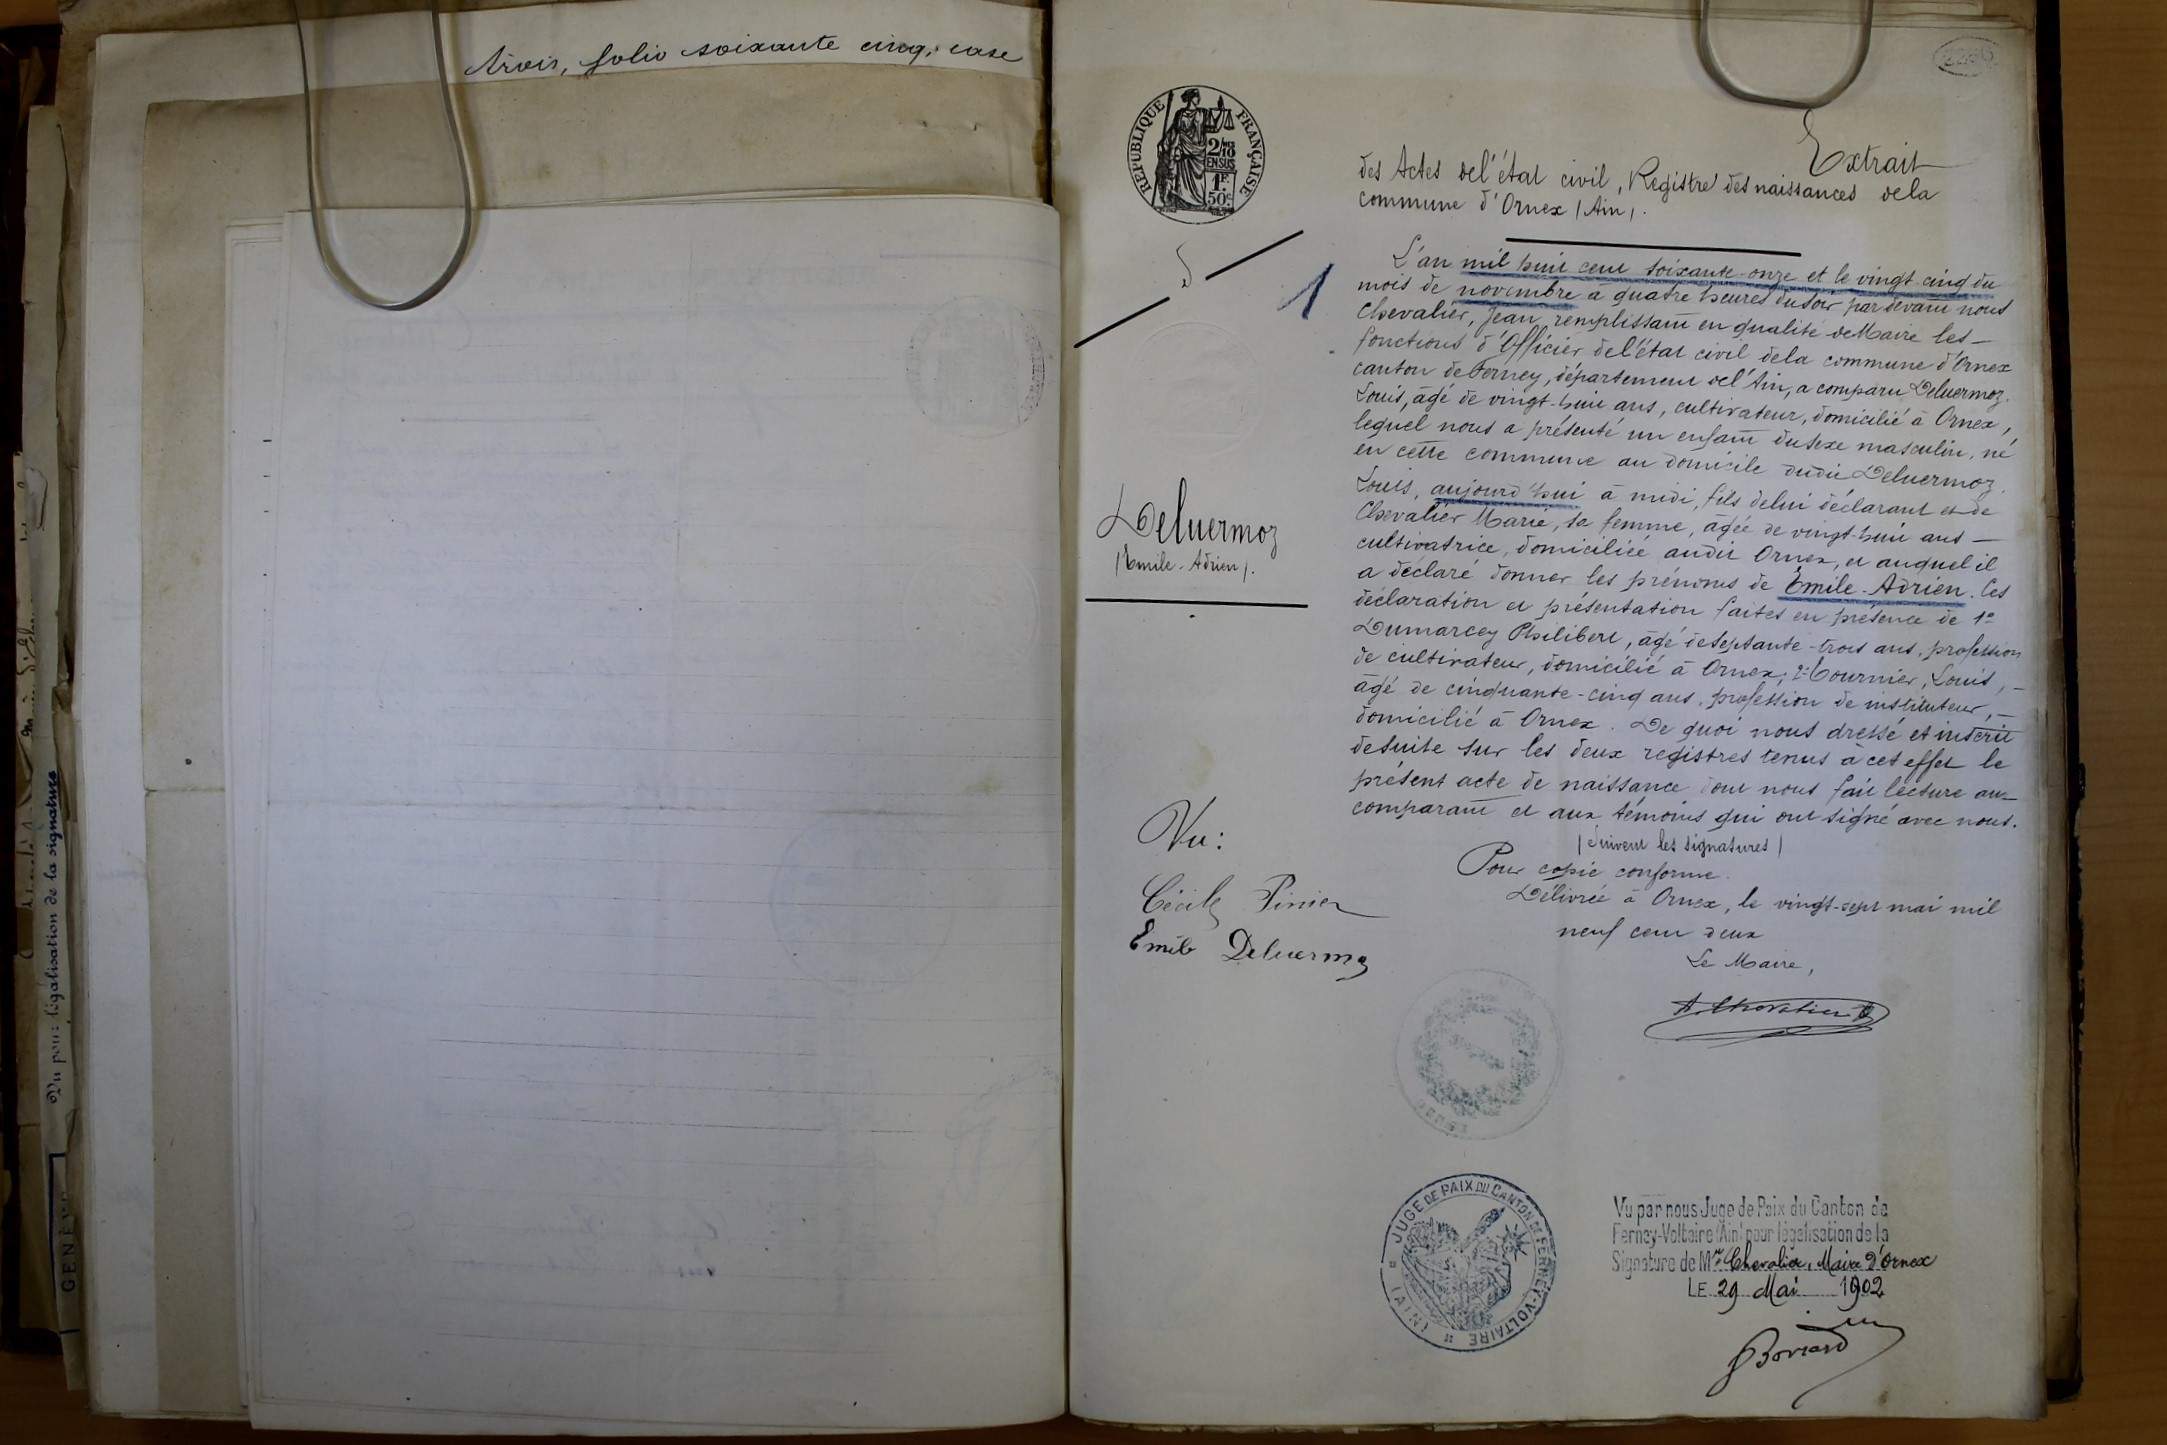 trois, folio soixante cinq, case
Vu pour légalisation de la signature
GENÈVE
RÉPUBLIQUE FRANÇAISE
2/10
EN SUS
1F.
50c.
Extrait
des Actes de l'état civil, Registre des naissances de la
commune d'Ornex (Ain).
1
L'an mil huit cent soixante-onze et le vingt cinq du
mois de novembre à quatre heures du soir, par devant nous
Chevalier, Jean, remplissant en qualité de Maire les
fonctions d'Officier de l'état civil de la commune d'Ornex
canton de Ferney, département de l'Ain, a comparu Deluermoz
Louis, âgé de vingt-huit ans, cultivateur, domicilié à Ornex,
lequel nous a présenté un enfant du sexe masculin, né
en cette commune au domicile dudit Deluermoz
Louis, aujourd'hui à midi, fils de lui déclarant et de
Chevalier Marie, sa femme, âgée de vingt-huit ans
cultivatrice, domiciliée audit Ornex, et auquel il
a déclaré donner les prénoms de Emile-Adrien. Ces
déclaration et présentation faites en présence de 1º
Dumarcey Philibert, âgé de septante-trois ans, profession
de cultivateur, domicilié à Ornex; 2º Tournier, Louis,
âgé de cinquante-cinq ans, profession de instituteur,
domicilié à Ornex. De quoi nous dressé et inscrit
de suite sur les deux registres tenus à cet effet le
présent acte de naissance dont nous fait lecture au
comparant et aux témoins qui ont signé avec nous.
(Suivent les signatures)
Pour copie conforme.
Délivrée à Ornex, le vingt-sept mai mil
neuf cent deux
Le Maire,
A. Chevalier
Deluermoz
(Emile-Adrien).
Vu:
Cécile Pinier
Emile Deluermoz
JUGE DE PAIX DU CANTON DE FERNEY-VOLTAIRE (AIN)
Vu par nous Juge de Paix du Canton de
Ferney-Voltaire (Ain) pour légalisation de la
Signature de Mr Chevalier, Maire d'Ornex
LE 29 Mai 1902